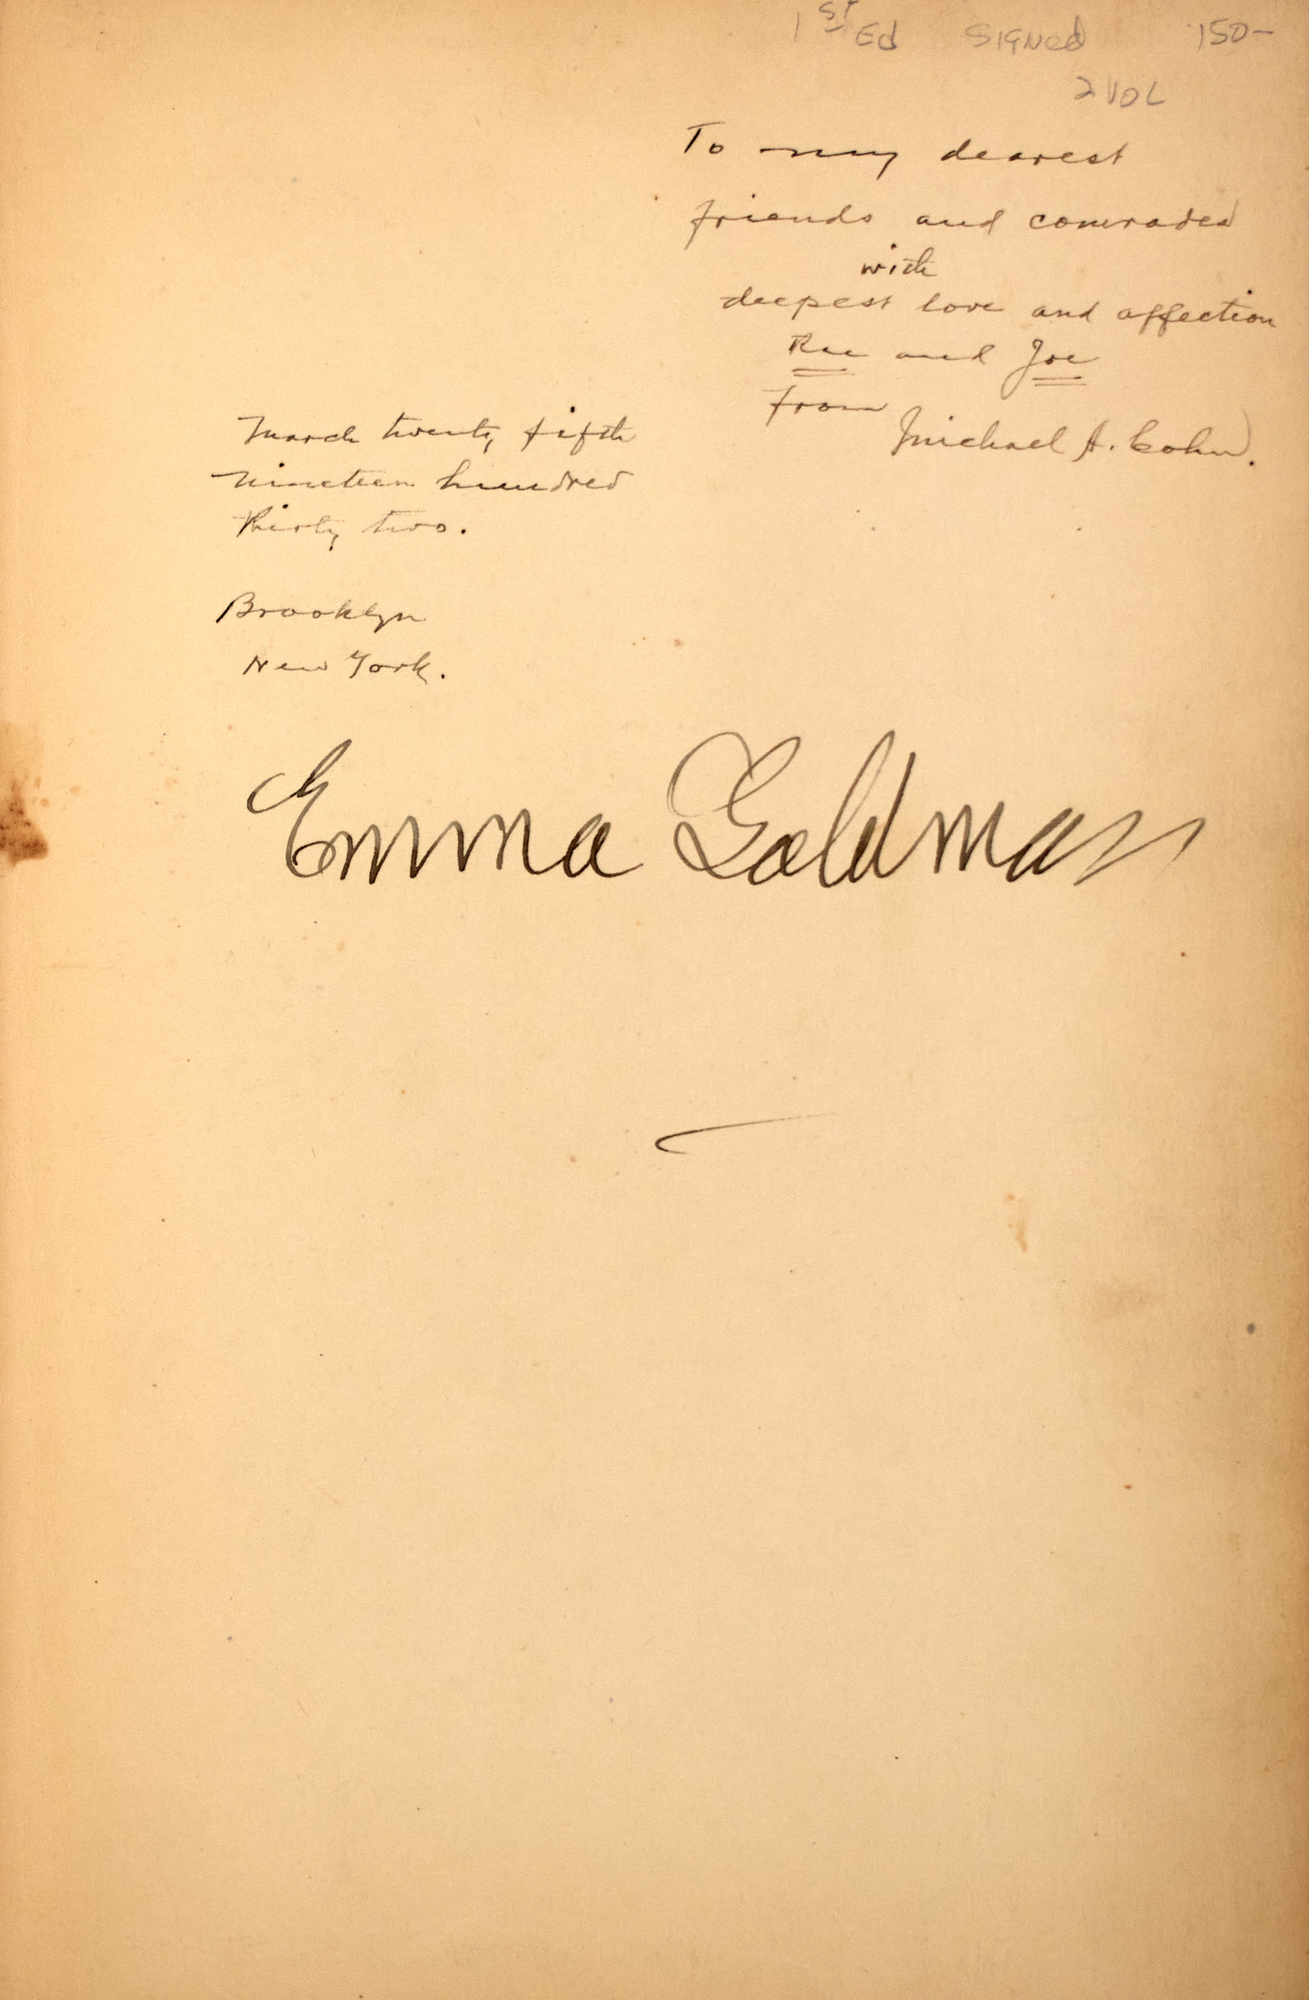 1st Ed Signed 150-
2 VOL
To my dearest
friends and comrades
with
deepest love and affection
Rae and Joe
From
Michael A. Cohn.
March twenty fifth
nineteen hundred
thirty two.
Brooklyn
New York.
Emma Goldman